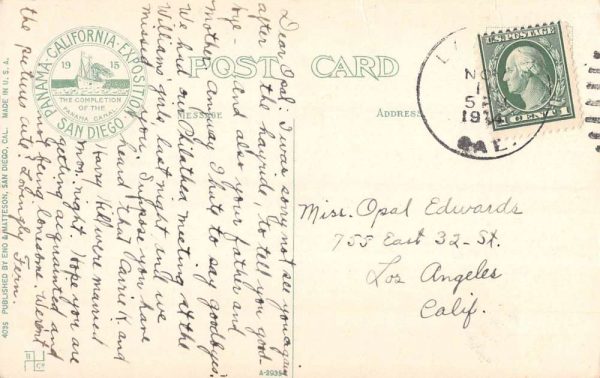 PANAMA-CALIFORNIA-EXPOSITION
1915
THE COMPLETION
OF THE
PANAMA CANAL
SAN DIEGO
POST CARD
MESSAGE
ADDRESS
U.S. POSTAGE
1 CENT 1
NO
1
5
191
CAL.
Dear Opal:- I was sorry not see you again
after the hayride, to tell you good-
bye- and also your father and
mother. Anyway I hate to say goodbye.
We had our Philathea meeting at the
Williams girls last night and we
missed you. Suppose you have
heard that Carrie K. and
Harry Hill were married
Mon. night. Hope you are
getting acquainted and
not being lonesome. Weren't
the pictures cute? Lovingly Fern.
Miss. Opal Edwards
755 East 32-St.
Los Angeles
Calif.
4035 PUBLISHED BY ENO & MATTESON, SAN DIEGO, CAL. MADE IN U.S.A.